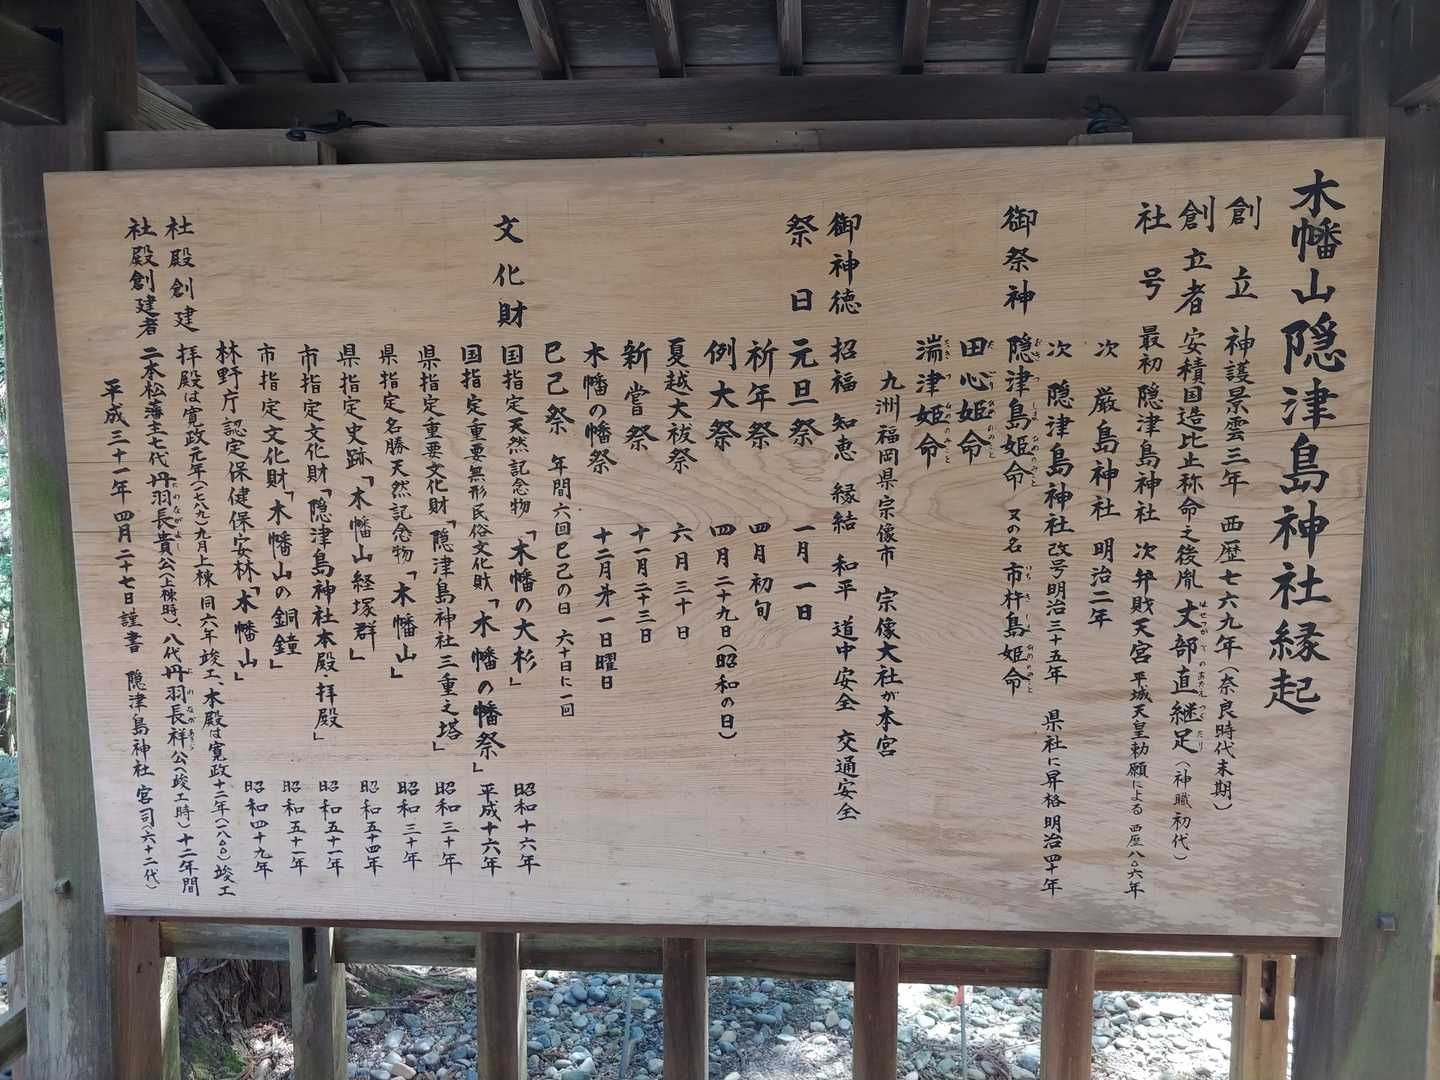 木幡山隠津島神社縁起
創立 神護景雲三年 西歴七六九年(奈良時代末期)
創立者 安積国造比止称命之後胤 丈部直継足(神職初代)
社号 最初 隠津島神社 次 弁財天宮 平城天皇勅願による 西歴八〇六年
次 厳島神社 明治二年
次 隠津島神社 改号明治三十五年 県社に昇格明治四十年
御祭神 隠津島姫命 又の名 市杵島姫命
田心姫命
湍津姫命
九洲福岡県宗像市 宗像大社が本宮
御神徳 招福 知恵 縁結 和平 道中安全 交通安全
祭日 元旦祭 一月一日
祈年祭 四月初旬
例大祭 四月二十九日(昭和の日)
夏越大祓祭 六月三十日
新嘗祭 十一月二十三日
木幡の幡祭 十二月第一日曜日
巳己祭 年間六回巳己の日 六十日に一回
文化財 国指定天然記念物 「木幡の大杉」 昭和十六年
国指定重要無形民俗文化財「木幡の幡祭」 平成十六年
県指定重要文化財「隠津島神社三重之塔」 昭和三十年
県指定名勝天然記念物「木幡山」 昭和三十年
県指定史跡「木幡山経塚群」 昭和五十四年
市指定文化財「隠津島神社本殿・拝殿」 昭和五十一年
市指定文化財「木幡山の銅鐘」 昭和五十一年
林野庁認定保健保安林「木幡山」 昭和四十九年
社殿創建 拝殿は寛政元年(一七八九)九月上棟 同六年竣工、本殿は寛政十二年(一八〇〇)竣工
社殿創建者 二本松藩主七代丹羽長貴公(上棟時)、八代丹羽長祥公(竣工時)十二年間
平成三十一年四月二十七日謹書 隠津島神社 宮司(六十二代)